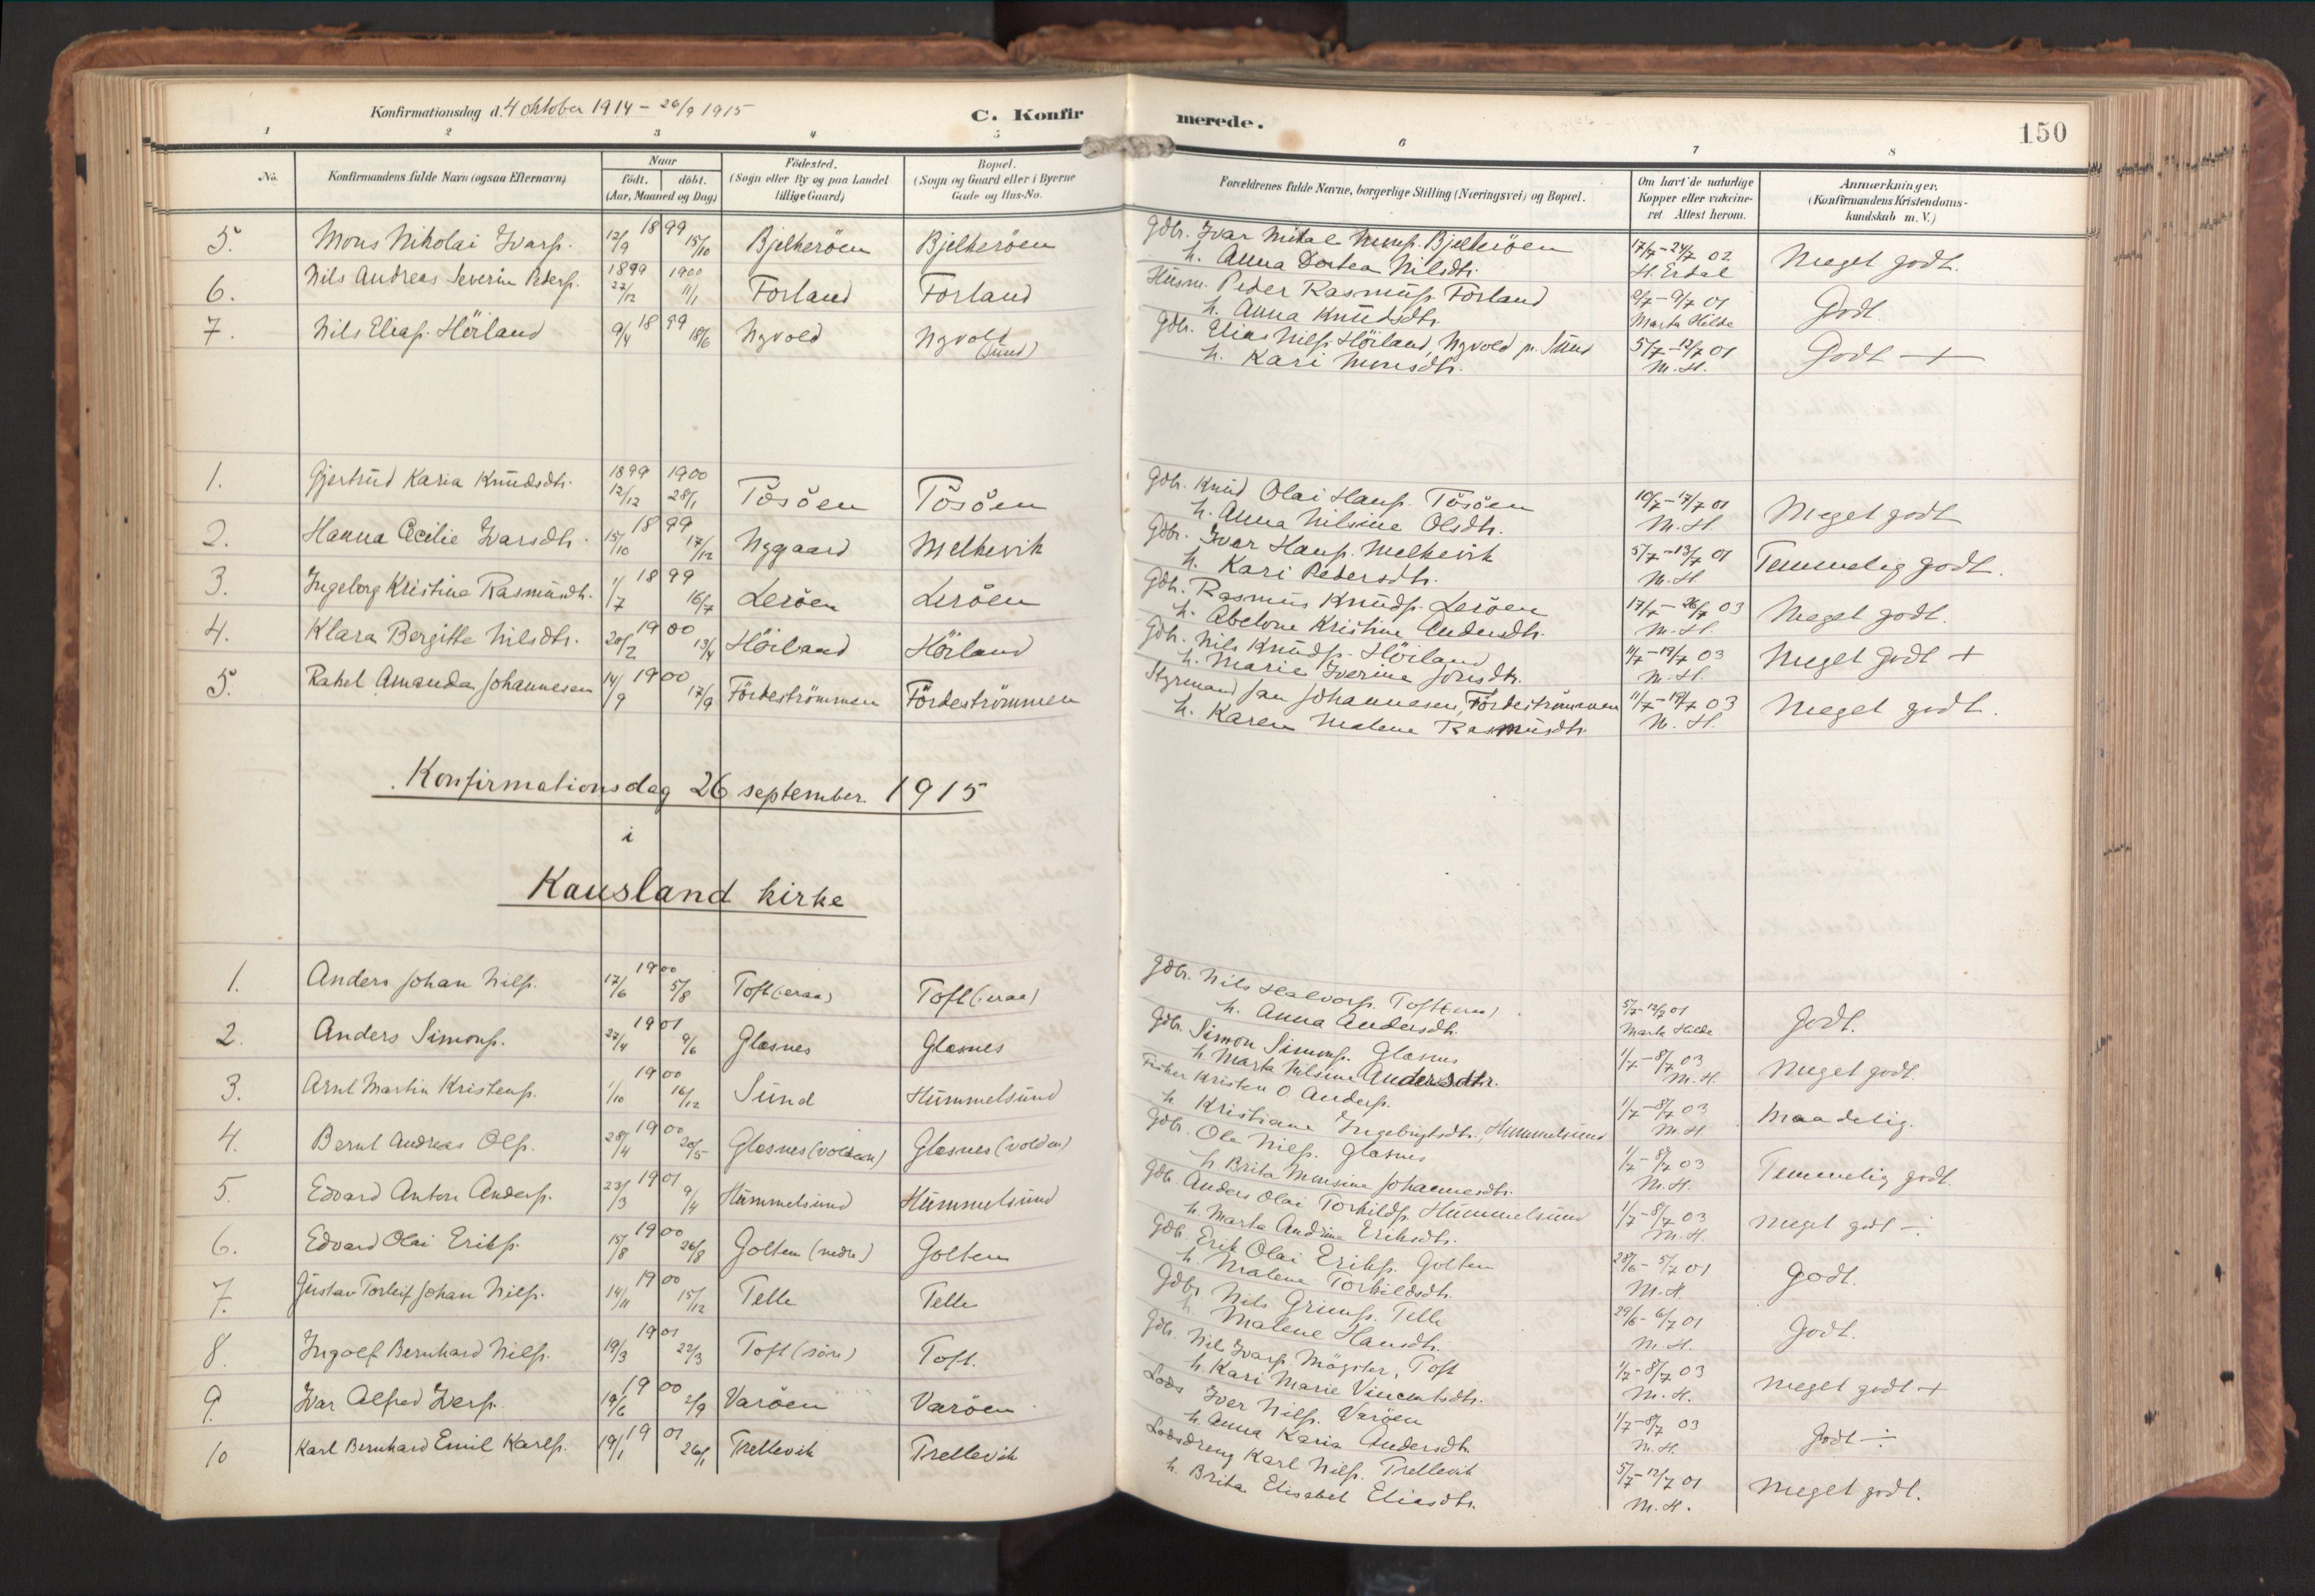 Konfirmationsdag d. 4 oktober 1914 – 26/9 1915
C. Konfirmerede.
150
1 2 3 4 5 6 7 8
No.
Konfirmandens fulde Navn (ogsaa Efternavn)
Naar
født. døbt.
(Aar, Maaned og Dag)
Fødested.
(Sogn eller By og paa Landet
tillige Gaard)
Bopæl.
(Sogn og Gaard eller i Byerne
Gade og Hus-No.
Forældrenes fulde Navne, borgerlige Stilling (Næringsvei) og Bopæl.
Om havt de naturlige
Kopper eller vakcine-
ret Attest herom.
Anmærkninger.
(Konfirmandens Kristendoms-
kundskab m. V.)
5. Mons Nikolai Ivarss. 1899 12/9 15/10 Bjelkeröen Bjelkeröen
Gdbr. Ivar Mikal Monss. Bjelkeröen
h. Anna Dortea Nilsdtr.
17/7 – 24/7 02
H. Erdal
Meget godt.
6. Nils Andreas Severin Pederss. 1899 22/12 1900 11/1 Forland Forland
Husm. Peder Rasmuss. Forland
h. Anna Knudsdtr.
2/7 – 9/7 01
Marta Hilde
Godt.
7. Nils Eliass. Höiland 1899 9/4 18/6 Nyvold Nyvold
(Sund)
Gdbr. Elias Nilss. Höiland, Nyvold pr. Sund
h. Kari Monsdtr.
5/7 – 12/7 01
M. H.
Godt – +
1. Gjertrud Karia Knudsdtr. 1899 12/12 1900 28/1 Tösöen Tösöen
Gdbr. Knud Olai Hanss. Tösöen
h. Anna Nilsine Olsdtr.
10/7 – 17/7 01
M. H.
Meget godt
2. Hanna Cecilie Ivarsdtr. 1899 15/10 17/12 Nygaard Melkevik
Gdbr. Ivar Hanss. Melkevik
h. Kari Pedersdtr.
5/7 – 13/7 01
M. H.
Temmelig godt.
3. Ingeborg Kristine Rasmusdtr. 1899 1/7 16/7 Leröen Leröen
Gdbr. Rasmus Knudss. Leröen
h. Abelone Kristine Andersdtr.
17/7 – 26/7 03
M. H.
Meget godt.
4. Klara Bergitte Nilsdtr. 1900 20/2 13/4 Höiland Höiland
Gdbr. Nils Knudss. Höiland
h. Marie Iverine Jonsdtr.
11/7 – 19/7 03
M. H.
Meget godt +
5. Rakel Amanda Johannesen 1900 14/9 17/9 Fördeströmmen Fördeströmmen
Styrmand Jan Johannesen, Fördeströmmen
h. Karen Malene Rasmusdtr.
11/7 – 19/7 03
M. H.
Meget godt.
Konfirmationsdag 26 september 1915
i
Kausland kirke
1. Anders Johan Nilss. 1900 17/6 5/8 Toft
Toft
Gdbr. Nils Halvorss. Toft
h. Anna Andersdtr.
5/7 – 12/7 01
Marta Hilde
Godt.
2. Anders Simonss. 1901 27/4 9/6 Glæsnes Glæsnes
Gdbr. Simon Simonss. Glæsnes
h. Marta Nilsine Andersdtr.
1/7 – 8/7 03
M. H.
Meget godt.
3. Arnt Martin Kristenss. 1900 1/10 16/12 Sund Hummelsund
Fisker Kristen O. Anderss.
h. Kristiane Ingebrigtsdtr., Hummelsund
1/7 – 8/7 03
M. H.
Maadelig.
4. Bernt Andreas Olss. 1900 28/4 20/5 Glæsnes (volden) Glæsnes (volden)
Gdbr. Ole Nilss. Glæsnes
h. Brita Monsine Johannesdtr.
1/7 – 8/7 03
M. H.
Temmelig godt.
5. Edvard Anton Anderss. 1901 23/3 9/4 Hummelsund Hummelsund
Gdbr. Anders Olai Torkildss. Hummelsund
h. Marta Andrine Eriksdtr.
1/7 – 8/7 03
M. H.
Meget godt ÷
6. Edvard Olai Erikss. 1900 15/8 26/8 Golten (nedre) Golten
Gdbr. Erik Olai Erikss. Golten
h. Malene Torkildsdtr.
28/6 – 5/7 01
M. H.
Godt.
7. Gustav Torleif Johan Nilss. 1900 14/11 15/12 Telle Telle
Gdbr. Nils Grimss. Telle
h. Malene Hansdtr.
29/6 – 6/7 01
M. H.
Godt.
8. Ingolf Bernhard Nilss. 1901 19/3 22/3 Toft (söre) Toft.
Gdbr. Nils Ivarss. Mögster, Toft
h. Kari Marie Vincentsdtr.
1/7 – 8/7 03
M. H.
Meget godt +
9. Ivar Alfred Iverss. 1900 19/6 2/9 Varöen Varöen
Lods Iver Nilss. Varöen
h. Anna Karia Andersdtr.
1/7 – 8/7 03
M. H.
Godt ÷
10 Karl Bernhard Emil Karlss. 1901 19/1 26/1 Trellevik Trellevik
Lodsdreng Karl Nilss. Trellevik
h. Brita Elisabet Eliasdtr.
5/7 – 12/7 01
M. H.
Meget godt.